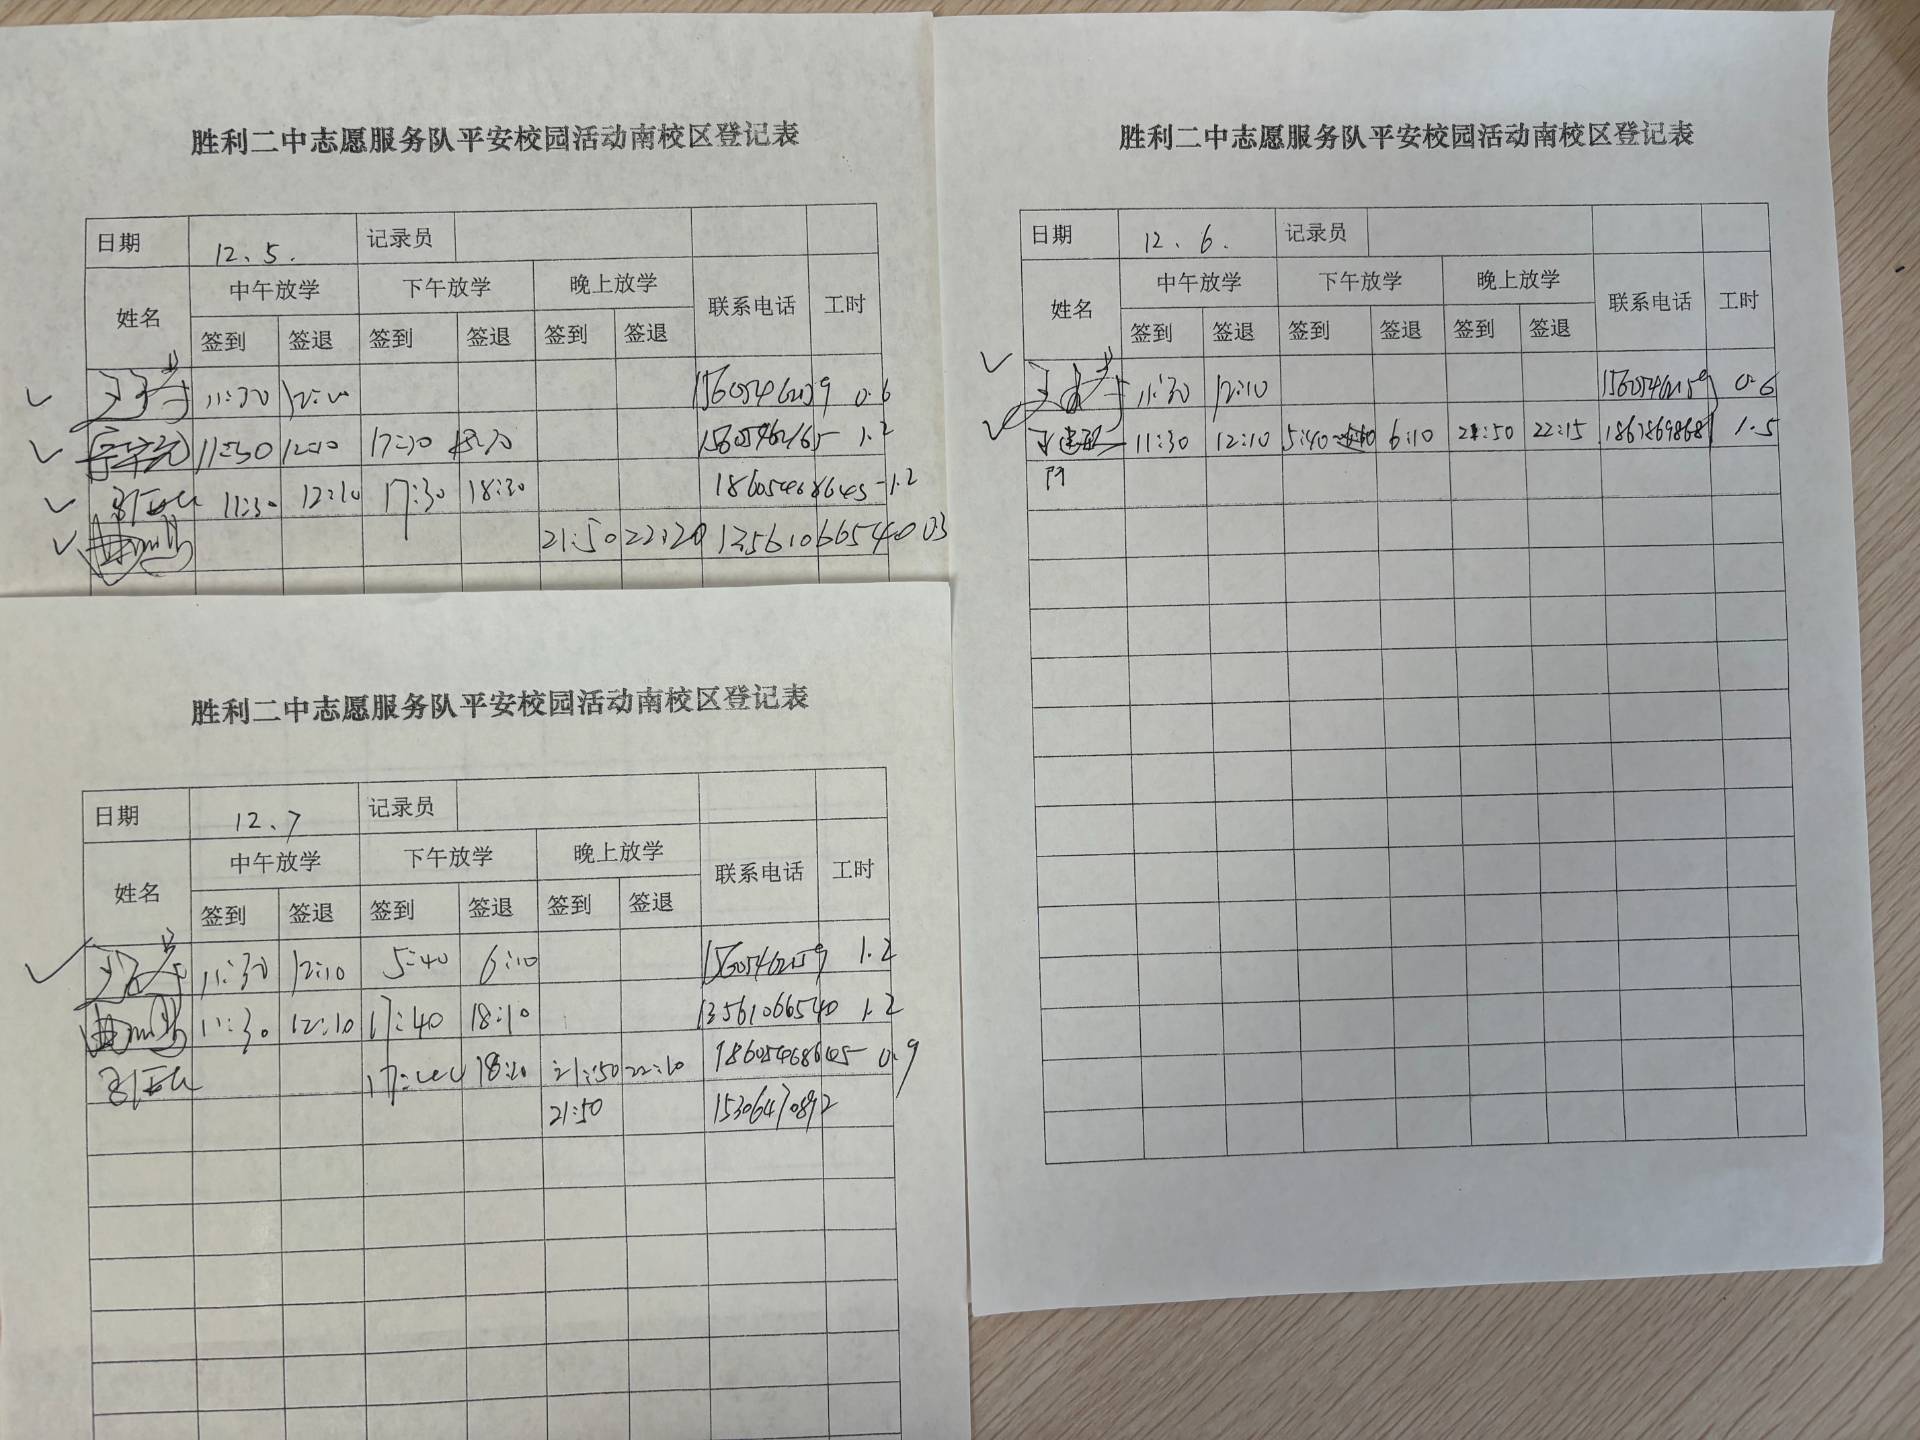 胜利二中志愿服务队平安校园活动南校区登记表
日期 12.5. 记录员
姓名 中午放学 下午放学 晚上放学 联系电话 工时
签到 签退 签到 签退 签到 签退
11:30 0.6
11:30 12:10 17:30 15605462165 1.2
11:30 12:10 17:30 18:30 18605468645 1.2
21:50 22:20 13561066540 0.3
胜利二中志愿服务队平安校园活动南校区登记表
日期 12.6. 记录员
姓名 中午放学 下午放学 晚上放学 联系电话 工时
签到 签退 签到 签退 签到 签退
11:30 12:10 15605462159 0.6
11:30 12:10 5:40 6:10 21:50 22:15 1.5
胜利二中志愿服务队平安校园活动南校区登记表
日期 12.7 记录员
姓名 中午放学 下午放学 晚上放学 联系电话 工时
签到 签退 签到 签退 签到 签退
11:30 12:10 5:40 6:10 15605462159 1.2
11:30 12:10 17:40 18:10 13561066540 1.2
18:10 21:50 22:10 18605468645 0.9
21:50 15306470892